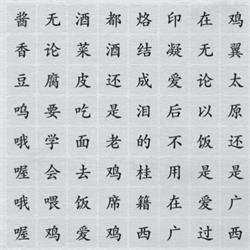 酱无酒都烙印在鸡
香论菜酒结凝无翼
豆腐皮还成爱论太
呜要吃是泪后以原
哦学面老的不饭还
喔会去鸡桂用是是
哦喂饭席籍在爱广
喔鸡爱鸡西广过西